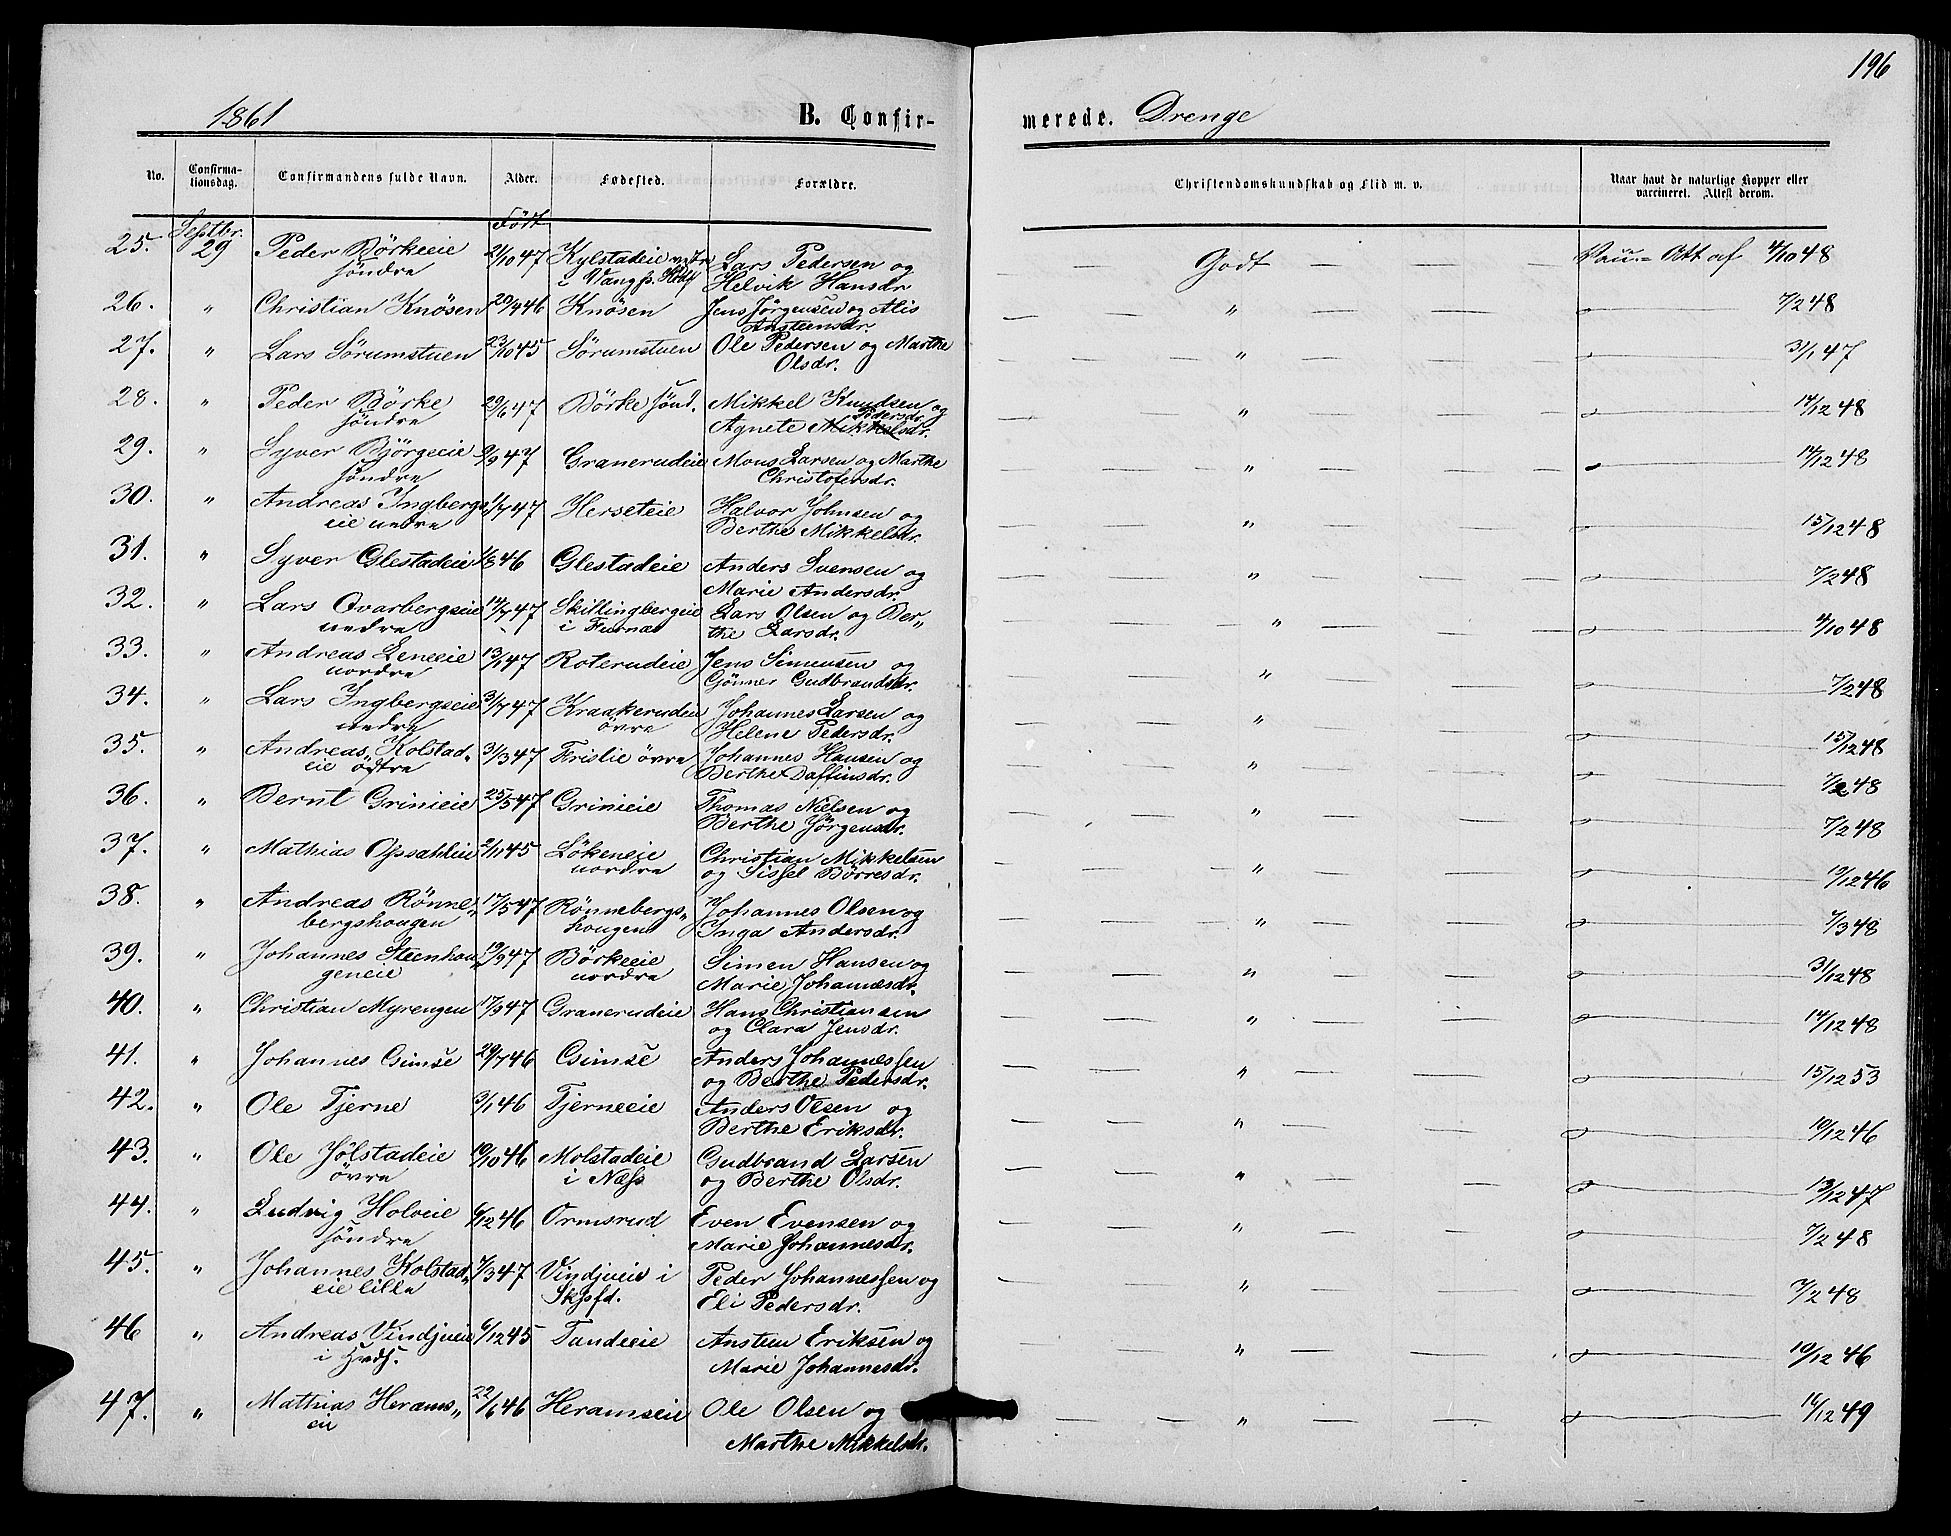 196
1861 B. Confir- merede. Drenge
No. Confirma-tionsdag. Confirmandens fulde Navn. Alder. Fødested. Forældre. Christendomskundskab og Flid m. v. Naar havt de naturlige Kopper eller vaccineret. Attest derom.
Septbr. Født
25. 29 Peder Börkeeie 2/10 47 Kylstadeie nedre Lars Pedersen og — Godt — — — Vacc. Att af 4/10 48
söndre i Vangs Helvik Hansdr
26. " Christian Knösen 20/4 46 Knösen Jens Jörgensen og Alis — " — — — 7/2 48
Ansteensdr.
27. " Lars Sörumstuen 23/10 45 Sörumstuen Ole Pedersen og Marthe — " — — — 31/1 47
Olsdr.
28. " Peder Börke 29/6 47 Börke sönd. Mikkel Knudsen og — " — — — 14/12 48
söndre Pedersdr.
Agnete Mikkelsdr.
29. " Syver Björgeeie 9/9 47 Granerudeie Mons Larsen og Marthe — " — — — 14/12 48
söndre Christofersdr.
30. " Andreas Ingbergs 1/7 47 Herseteie Halvor Johnsen og — " — — — 15/12 48
eie nedre Berthe Mikkelsdr.
31. " Syver Glestadeie 1/8 46 Glestadeie Anders Svensen og — " — — — 7/2 48
Marie Andersdr.
32. " Lars Qvarbergseie 14/7 47 Skillingbergeie Lars Olsen og Ber„ — " — — — 4/10 48
nedre i Furnæs the Larsdr.
33. " Andreas Leneeie 13/1 47 Roterudeie Jens Simensen og — " — — — 7/2 48
nordre Gönner Gudbrandsdr.
34. " Lars Ingbergseie 31/7 47 Kraakerudeie Johannes Larsen og — " — — — 15/12 48
nedre övre Helene Pedersdr.
35. " Andreas Kolstad„ 31/3 47 Frislie övre Johannes Hansen og — " — — — 7/2 48
eie östre Berthe Daffinsdr.
36. " Bernt Grinieie 25/5 47 Grinieie Thomas Nielsen og — " — — — 7/2 48
Berthe Jörgensdr.
37. " Mathias Opsahleie 2/11 45 Lökeneie Christian Mikkelsen — " — — — 19/12 46
nordre og Sissel Börresdr.
38. " Andreas Rönne„ 17/5 47 Rönnebergs„ Johannes Olsen og — " — — — 7/3 48
bergshougen hougen Inga Andersdr.
39. " Johannes Steenhou„ 19/9 47 Börkeeie Simen Hansen og — " — — — 31/12 48
geneie nordre Marie Johannesdr.
40. " Christian Myrengen 17/9 47 Granerudeie Hans Christiansen — " — — — 14/12 48
og Clara Jensdr.
41. " Johannes Gimse 29/7 46 Gimse Anders Johannessen — " — — — 15/12 53
og Berthe Pedersdr.
42. " Ole Tjerne 3/1 46 Tjerneeie Anders Olsen og — " — — — 19/12 46
Berthe Eriksdr.
43. " Ole Jölstadeie 19/10 46 Molstadeie Gudbrand Larsen — " — — — 13/12 47
övre i Næss og Berthe Olsdr.
44. " Ludvig Holveie 6/12 46 Ormsrud Even Evensen og — " — — — 7/2 48
söndre Marie Johannesdr.
45. " Johannes Kolstad„ 7/3 47 Vindjueie i Peder Johannessen og — " — — — 7/2 48
eie lille Skjsfd. Eli Pedersdr.
46 " Andreas Vindjueie 6/12 45 Tandeeie Ansteen Eriksen og — " — — — 19/12 46
i Hvds. Marie Johannesdr.
47. " Mathias Herams„ 22/6 46 Heramseie Ole Olsen og — " — — — 16/12 49
eie Marthe Mikkelsdr.